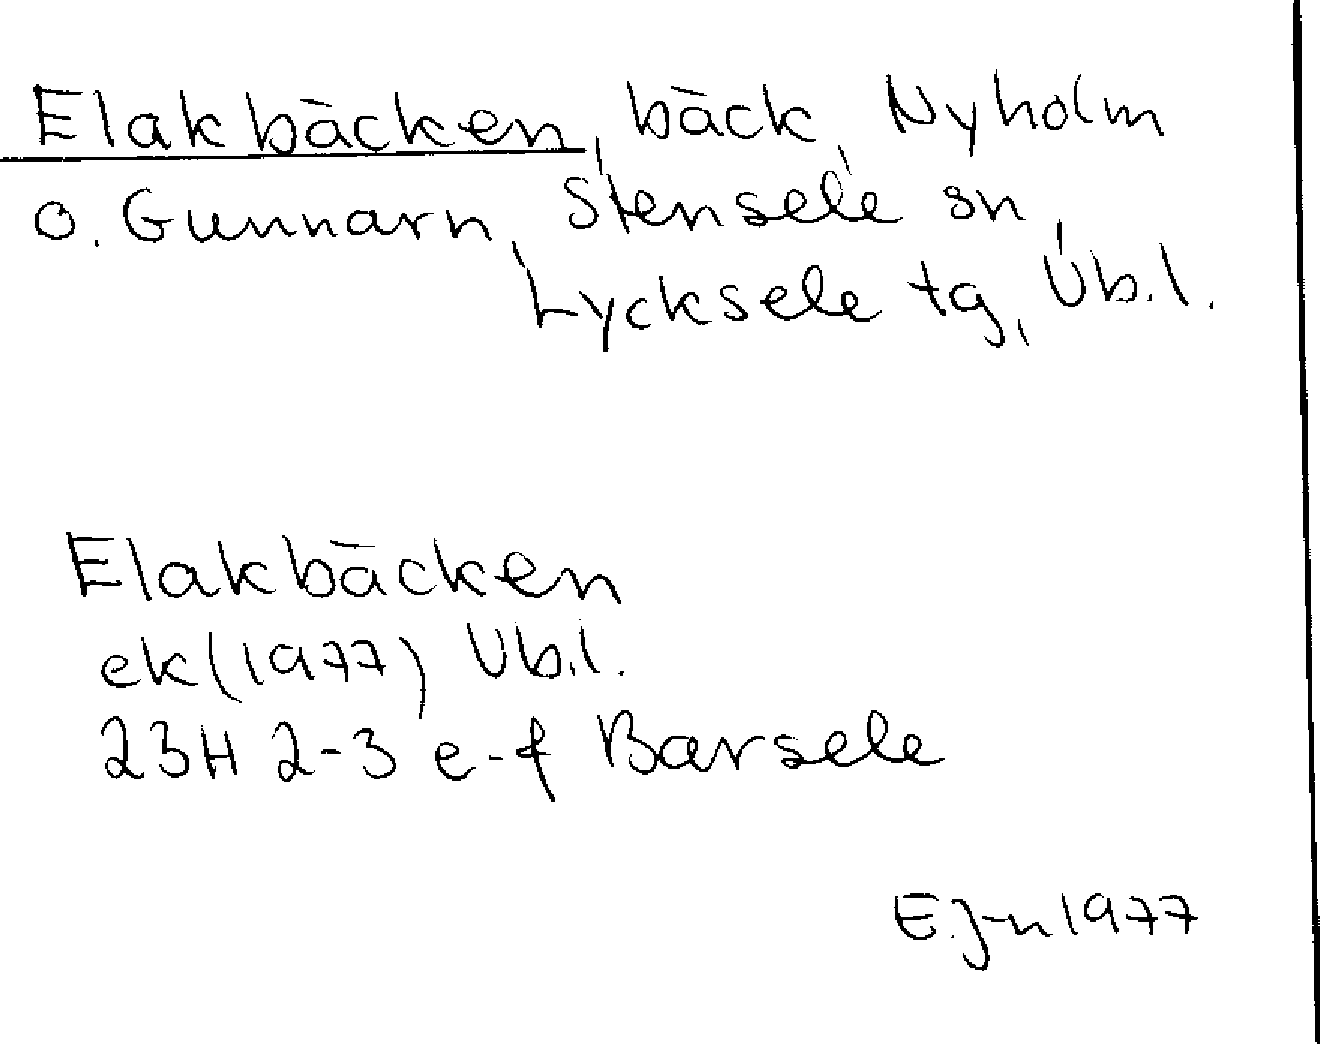 Elakbäcken, bäck, Nyholm
o. Gunnarn, Stensele sn,
Lycksele tg, Vb.l.
Elakbäcken
ek(1977) Vb.l.
23H 2-3 e-f Barsele
E.J-n 1977